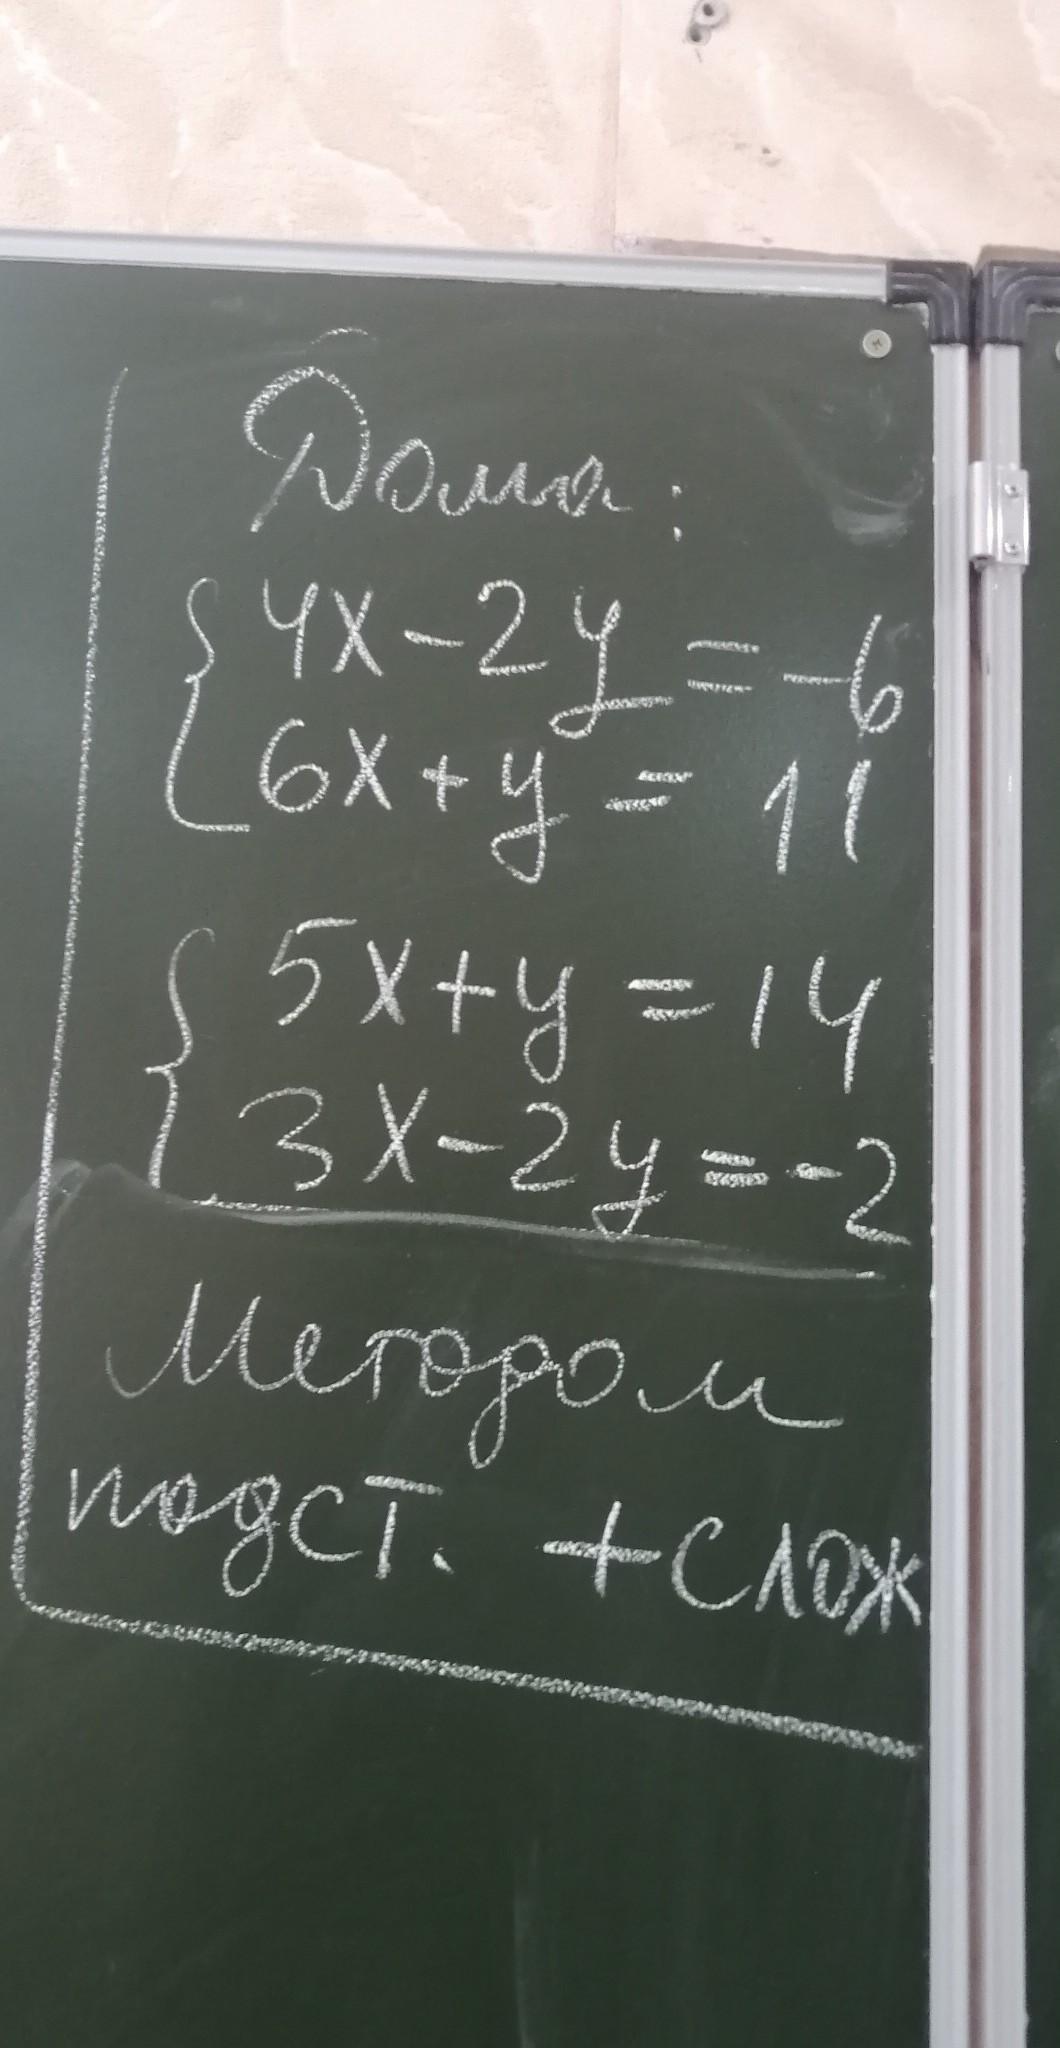 Дома:
4x-2y=-6
6x+y=11
5x+y=14
3x-2y=-2
Методом
подст. +слож